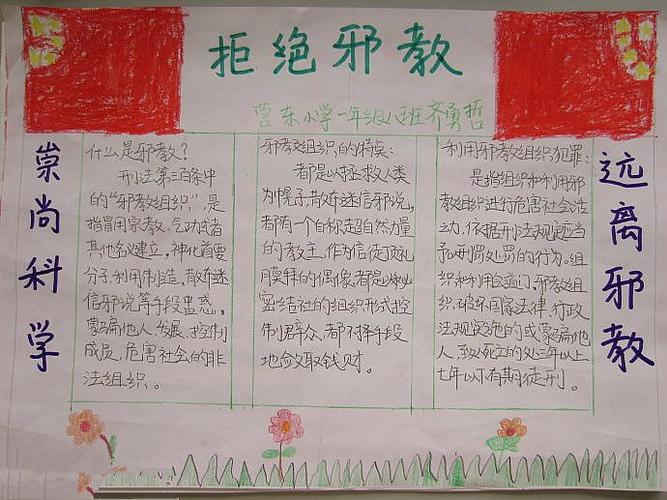 拒绝邪教
营东小学一年级八班齐勇哲
崇尚科学
什么是邪教?
刑法第三百条中
的“邪教组织”,是
指冒用宗教、气功或者
其他名义建立,神化首要
分子,利用制造、散布迷
信邪说等手段蛊惑、
蒙骗他人,发展、控制
成员,危害社会的非
法组织。
邪教组织的特点:
都是以拯救人类
为幌子,散布迷信邪说,
都有一个自称超自然力量
的教主,作为信徒顶礼
膜拜的偶像,都是以秘
密结社的组织形式控
制群众,都不择手段
地敛取钱财。
利用邪教组织犯罪:
是指组织和利用邪
教组织进行危害社会活
动,依据刑法规定应当
予以刑罚处罚的行为。组
织和利用会道门、邪教组
织,破坏国家法律、行政
法规实施的或蒙骗他
人,致人死亡的处三年以上
七年以下有期徒刑。
远离邪教